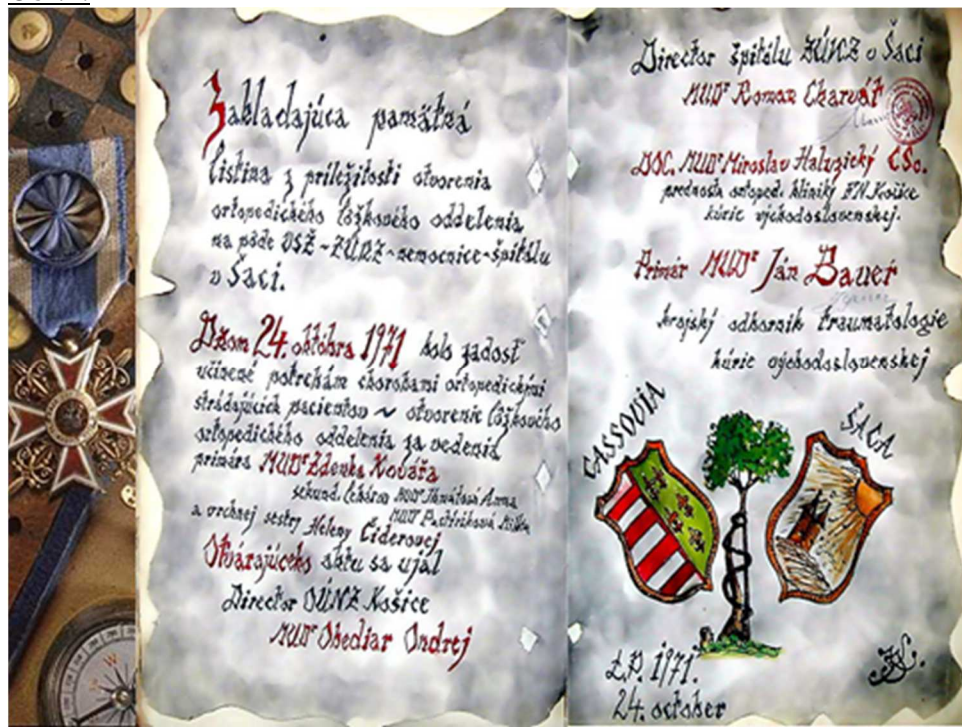 Zakladajúca pamätná
listina z príležitosti otvorenia
ortopedického lôžkového oddelenia
na pôde VSŽ-ZÚNZ-nemocnice-špitálu
v Šaci.
Dňom 24. októbra 1971 bolo zadosť
učinené potrebám chorobami ortopedickými
strádajúcich pacientov ~ otvorenie lôžkového
ortopedického oddelenia za vedenia
primára MUDr Zdenka Kovářa
sekund. lekárov MUDr Anna
MUDr
a vrchnej sestry Heleny Čiderovej
Otvarajúceho aktu sa ujal
Director OÚNZ Košice
MUDr Obediar Ondrej
Director špitálu ZÚNZ v Šaci
MUDr Roman Charvát
DOC. MUDr Miroslav Haluzický CSc.
prednosta ortoped. kliniky FN. Košice
kúrie východoslovenskej.
Primár MUDr Ján Bauer
krajský odborník traumatologie
kúrie východoslovenskej
CASSOVIA
ŠACA
L.P. 1971.
24. october